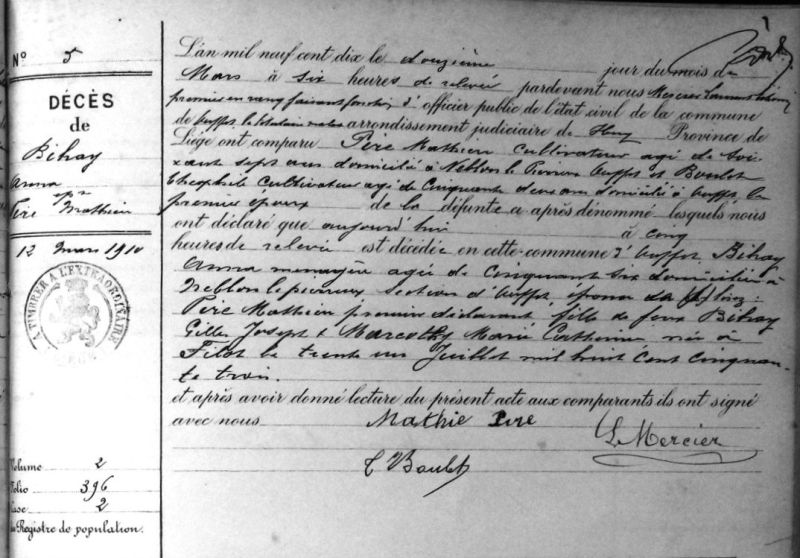 N° 5
DÉCÈS
de
Bihay
Anna
épse
Pire Mathieu
12 Mars 1910
A TIMBRER A L'EXTRAORDINAIRE
Volume 2
Folio 396
Case 2
du Registre de population.
L'an mil neuf cent dix le douzième jour du mois de
Mars à six heures de relevée pardevant nous Mercier Laurent
premier en rang faisant fonction d'officier public de l'état civil de la commune
de Ouffet, le titulaire arrondissement judiciaire de Huy Province de
Liège ont comparu Pire Mathieu cultivateur agé de soi-
xante sept ans domicilié à Neblon le Pierreux Ouffet et Boulet
Théophile cultivateur agé de cinquante deux ans domicilié à Ouffet le
premier époux de la défunte ci après dénommé lesquels nous
ont déclaré que aujourd'hui à cinq
heures de relevée est décédée en cette commune d'Ouffet Bihay
Anna ménagère agée de cinquante six domiciliée à
Neblon le pierreux section d'Ouffet, épouse du
Pire Mathieu premier déclarant, fille de feux Bihay
Gilles Joseph & Marcotty Marie Catherine née à
Filot le trente un Juillet mil huit cent cinquan-
te trois.
et après avoir donné lecture du présent acte aux comparants ils ont signé
avec nous
Mathie Pire
L. Mercier
T Boulet